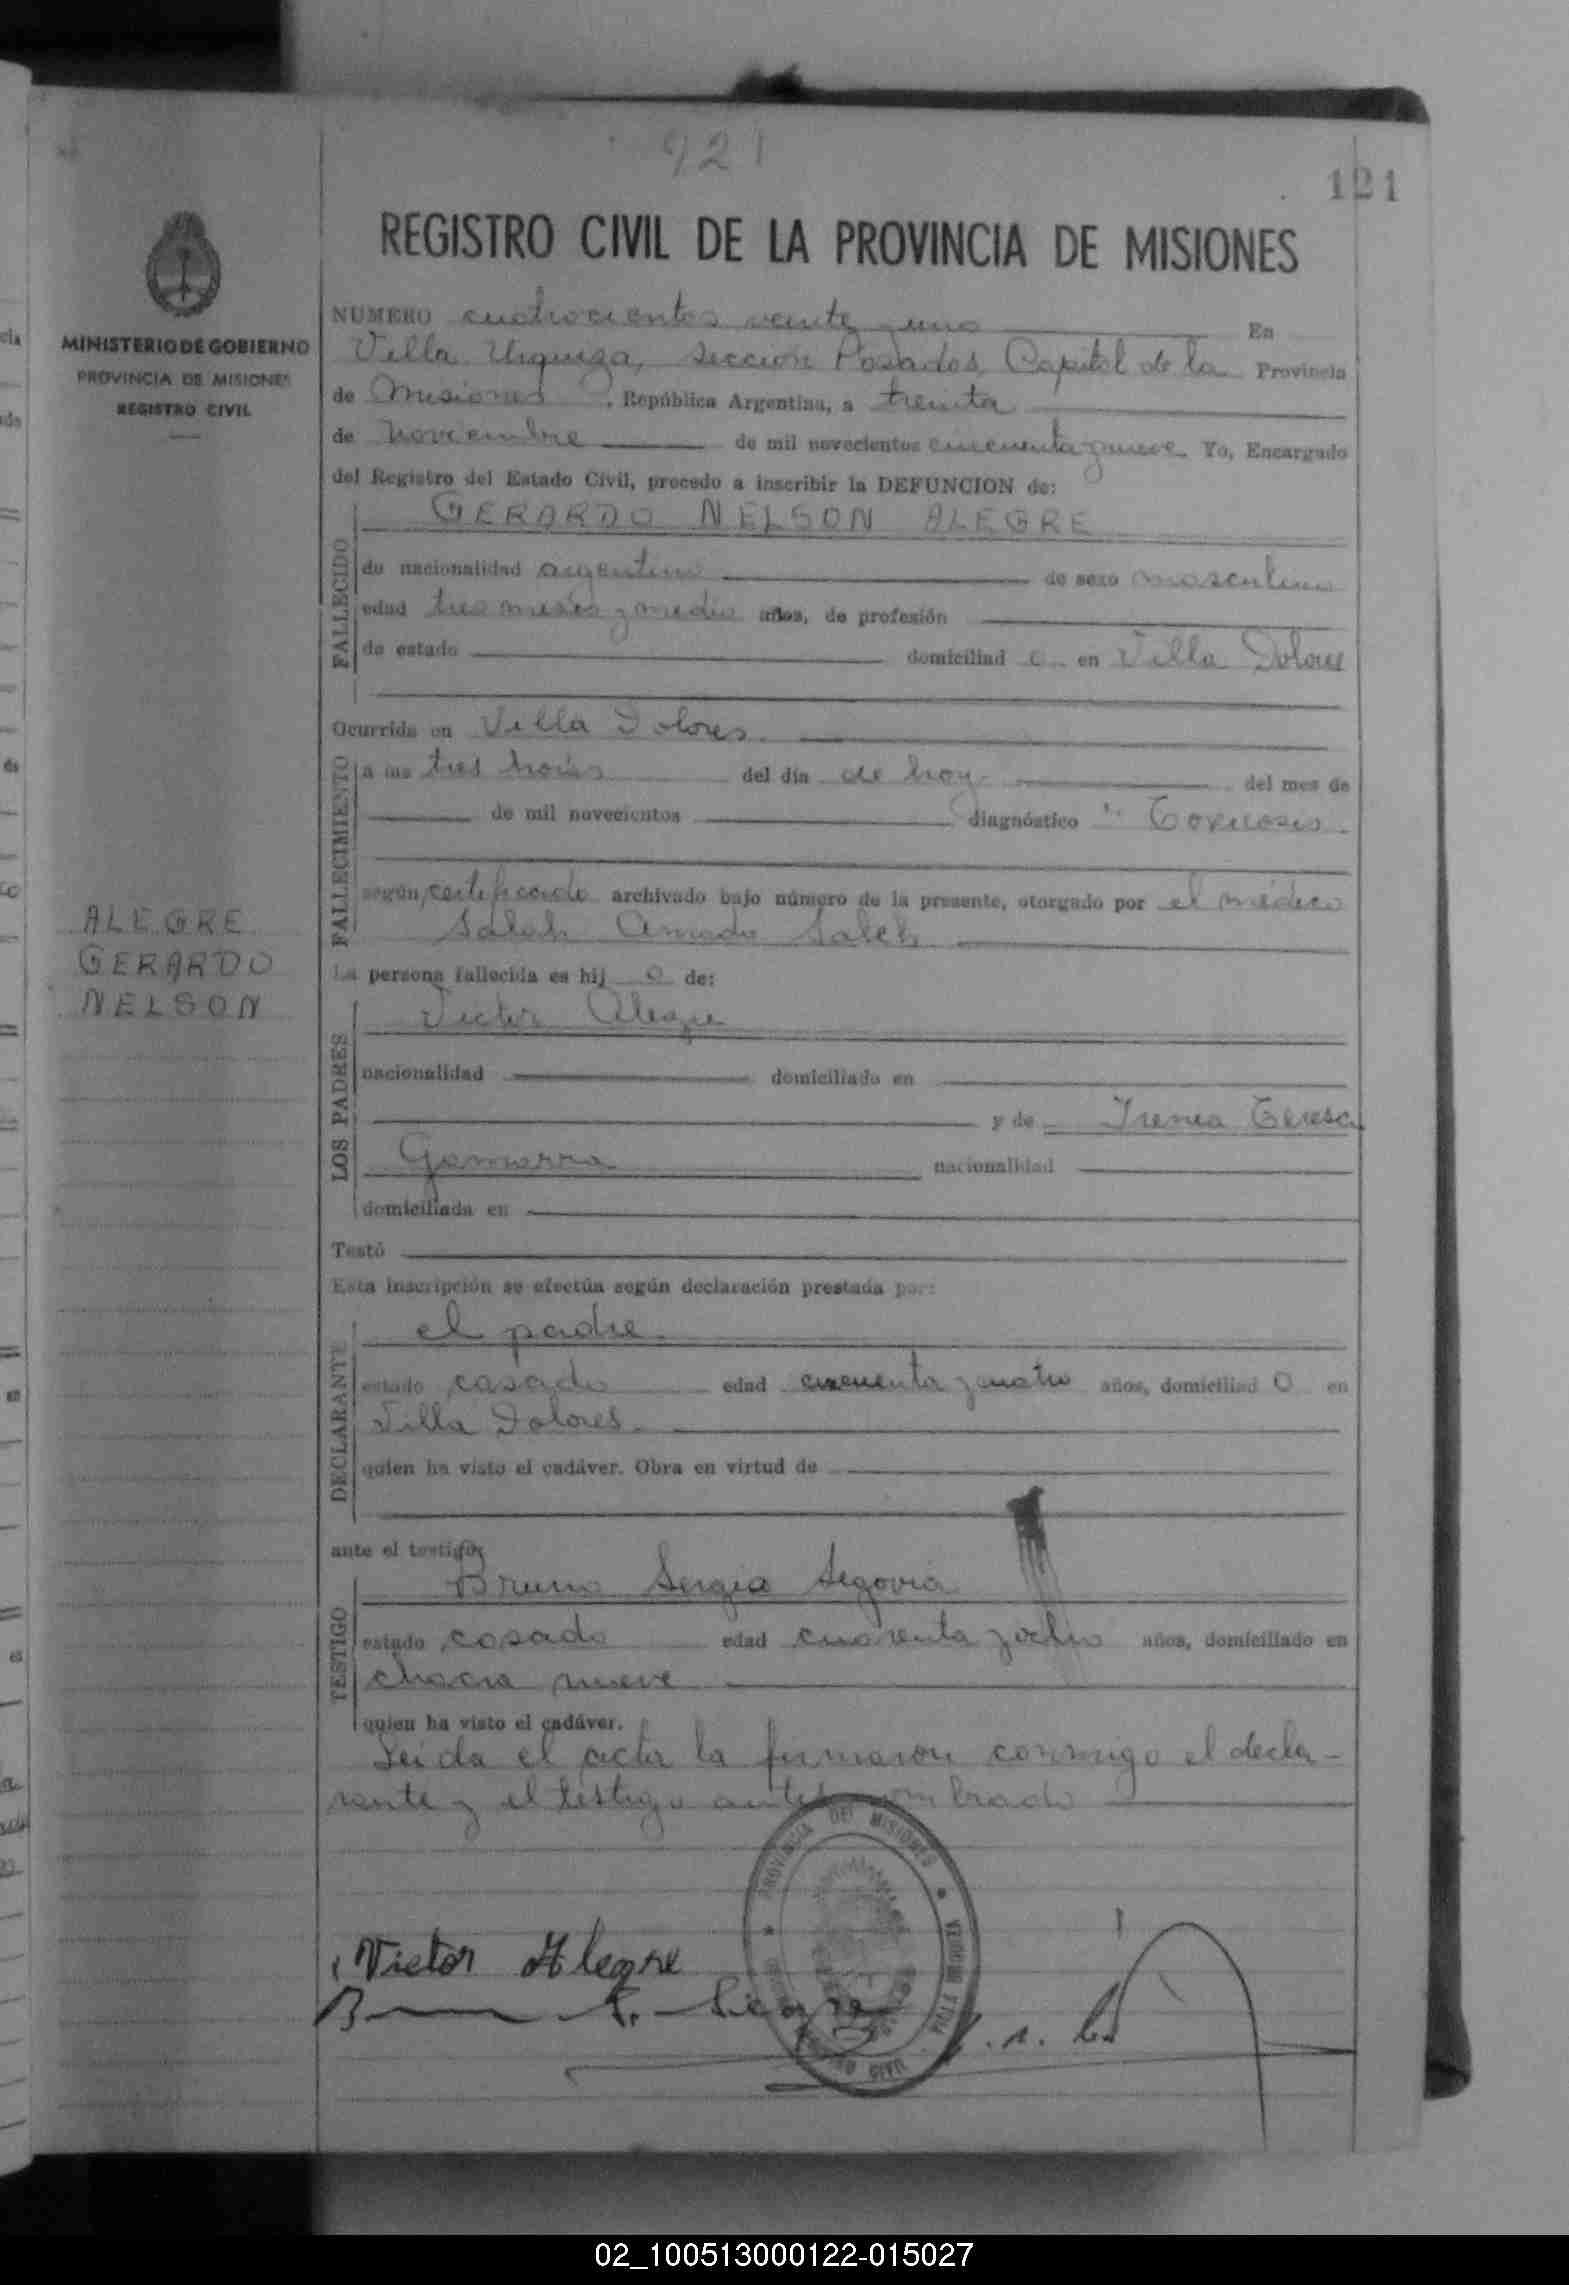 421
121
REGISTRO CIVIL DE LA PROVINCIA DE MISIONES
MINISTERIO DE GOBIERNO
PROVINCIA DE MISIONES
REGISTRO CIVIL
ALEGRE
GERARDO
NELSON
NUMERO cuatrocientos veinte y uno En
Villa Urquiza, sección Posadas, Capital de la Provincia
de Misiones, República Argentina, a treinta
de noviembre de mil novecientos cincuenta y nueve Yo, Encargado
del Registro del Estado Civil, procedo a inscribir la DEFUNCION de:
GERARDO NELSON ALEGRE
FALLECIDO
de nacionalidad argentino de sexo masculino
edad tres meses y medio años, de profesión
de estado domiciliad o en Villa Dolores
Ocurrida en Villa Dolores
FALLECIMIENTO
a las tres horas del día de hoy del mes de
de mil novecientos diagnóstico "Toxicosis
según certificado archivado bajo número de la presente, otorgado por el médico
Salah Amado Saleh
La persona fallecida es hij o de:
LOS PADRES
Victor Alegre
nacionalidad domiciliado en
y de Irenea Teresa
Gamarra nacionalidad
domiciliada en
Testó
Esta inscripción se efectúa según declaración prestada por:
DECLARANTE
el padre
estado casado edad cincuenta y cuatro años, domiciliad o en
Villa Dolores.
quien ha visto el cadáver. Obra en virtud de
ante el testigo:
TESTIGO
Bruno Sergio Segovia
estado casado edad cuarenta y ocho años, domiciliado en
chacra nueve
quien ha visto el cadáver.
Leída el acta la firmaron conmigo el decla-
rante y el testigo antes nombrado
Victor Alegre
PROVINCIA DE MISIONES
VILLA URQUIZA
REGISTRO CIVIL
02_100513000122-015027